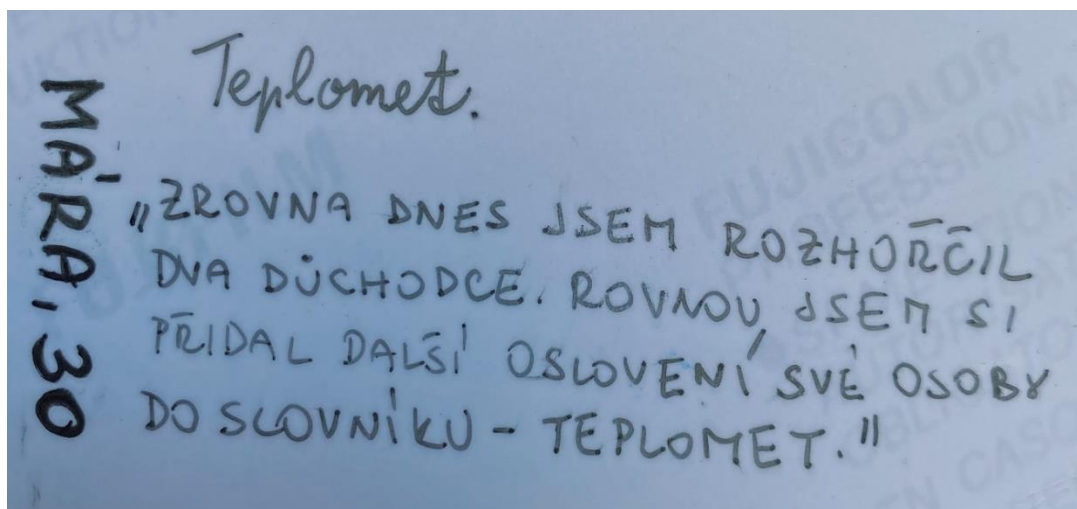 Teplomet.
MÁRA, 30
„ZROVNA DNES JSEM ROZHOŘČIL
DVA DŮCHODCE. ROVNOU JSEM SI
PŘIDAL DALŠÍ OSLOVENÍ SVÉ OSOBY
DO SLOVNÍKU - TEPLOMET."
FUJICOLOR